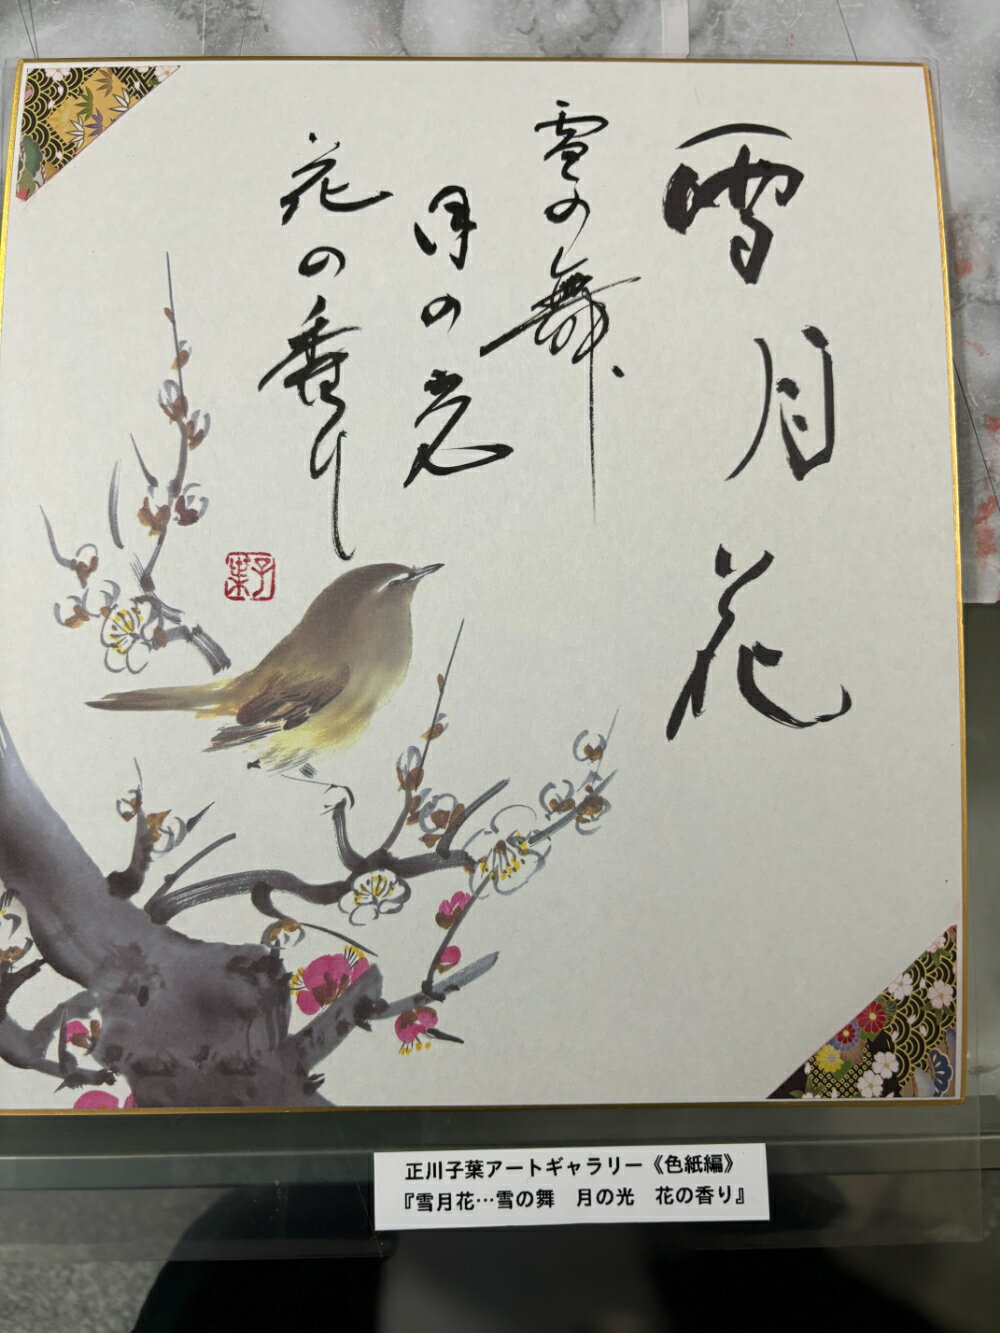 雪月花
雪の舞、
月の光
花の香り
子葉
正川子葉アートギャラリー《色紙編》
『雪月花…雪の舞　月の光　花の香り』